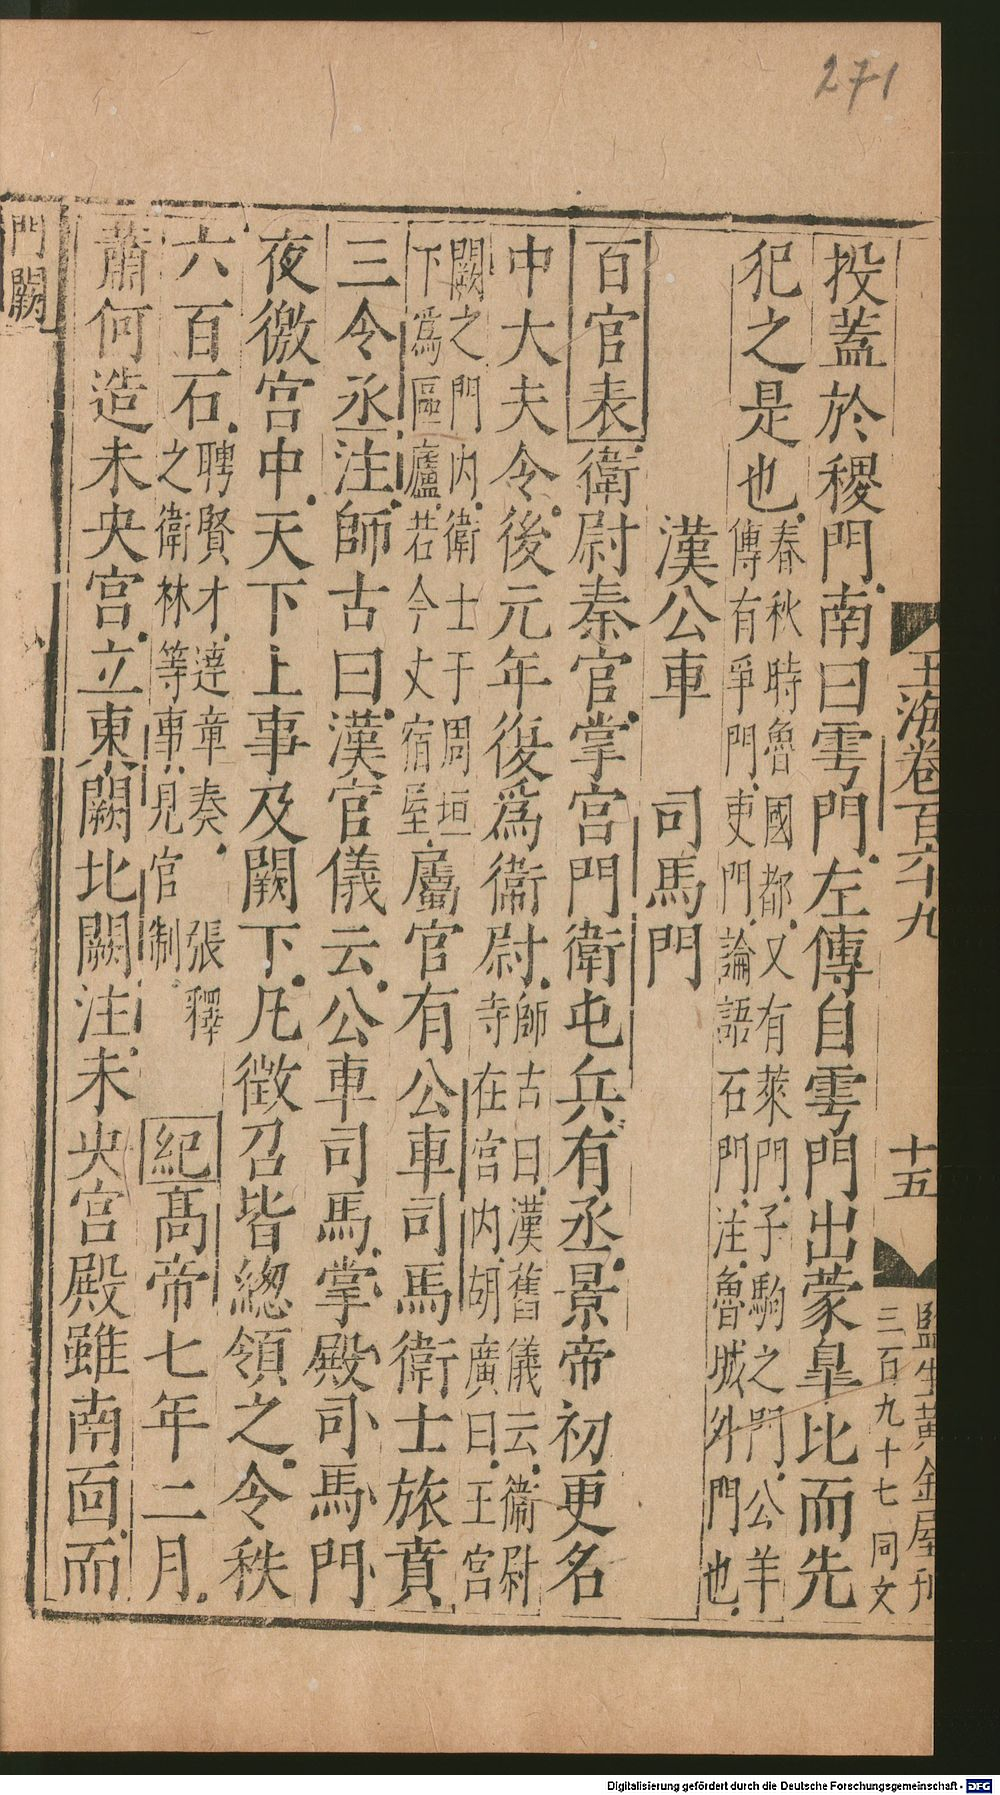 271
玉海卷百六十九
十五
監生黃金屋刊
三百九十七
同文
投蓋於稷門南曰雩門左傳自雩門出蒙臯比而先
犯之是也
春秋時魯國都又有萊門子駒之門公羊
傳有爭門吏門論語石門注魯城外門也
漢公車 司馬門
百官表衛尉秦官掌宮門衛屯兵有丞景帝初更名
中大夫令後元年復爲衞尉
師古曰漢舊儀云衞尉
寺在宮內胡廣曰王宮
闕之門內衞士于周垣
下爲區廬若今丈宿屋
屬官有公車司馬衛士旅賁
三令丞注師古曰漢官儀云公車司馬掌殿司馬門
夜徼宮中天下上事及闕下凡徵召皆緫領之令秩
六百石
聘賢才逹章奏 張釋
之衛林等事見官制
紀高帝七年二月
蕭何造未央宮立東闕北闕注未央宮殿雖南面而
門闕
Digitalisierung gefördert durch die Deutsche Forschungsgemeinschaft - DFG